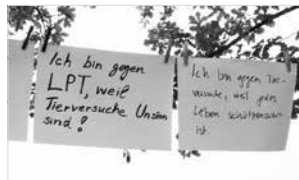 Ich bin gegen
LPT, weil
Tierversuche Unsinn
sind!
Ich bin gegen Tier-
versuche, weil jedes
Leben schützenswert
ist